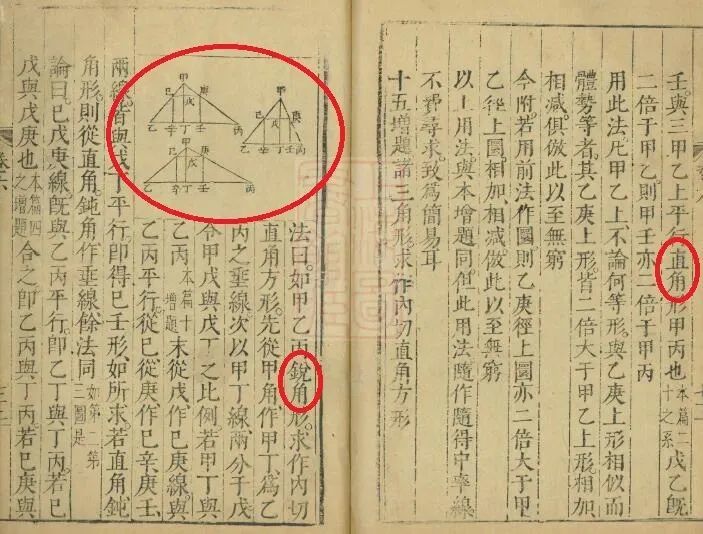 壬與三甲乙上平行直角形甲丙也本篇二十之系戊乙旣
二倍于甲乙則甲壬亦二倍于甲丙
用此法凡甲乙上不論何等形與乙庚上形相似而
體勢等者其乙庚上形皆二倍大于甲乙上形相加
相減俱倣此以至無窮
今附若用前法作圖則乙庚徑上圖亦二倍大于甲
乙徑上圖相加相減倣此以至無窮
以上用法與本增題同但此用法隨作隨得中率線
不費尋求致為簡易耳
十五增題諸三角形求作內切直角方形
甲 己 庚 戊 乙 辛 丁 壬 丙
甲 己 庚 戊 乙 辛 丁 壬 丙
甲 己 庚 戊 乙 辛 丁 壬 丙
法曰如甲乙丙銳角形求作內切
直角方形先從甲角作甲丁爲乙
丙之垂線次以甲丁線兩分于戊
令甲戊與戊丁之比例若甲丁與
乙丙本篇十增題末從戊作己庚線與
乙丙平行從己從庚作己辛庚壬
兩線皆與戊丁平行卽得己壬形如所求若直角鈍
角形則從直角鈍角作垂線餘法同如第二第三圖是
論曰己戊庚線旣與乙丙平行卽乙丁與丁丙若己
戊與戊庚也本篇四之增題合之卽乙丙與丁丙若己庚與